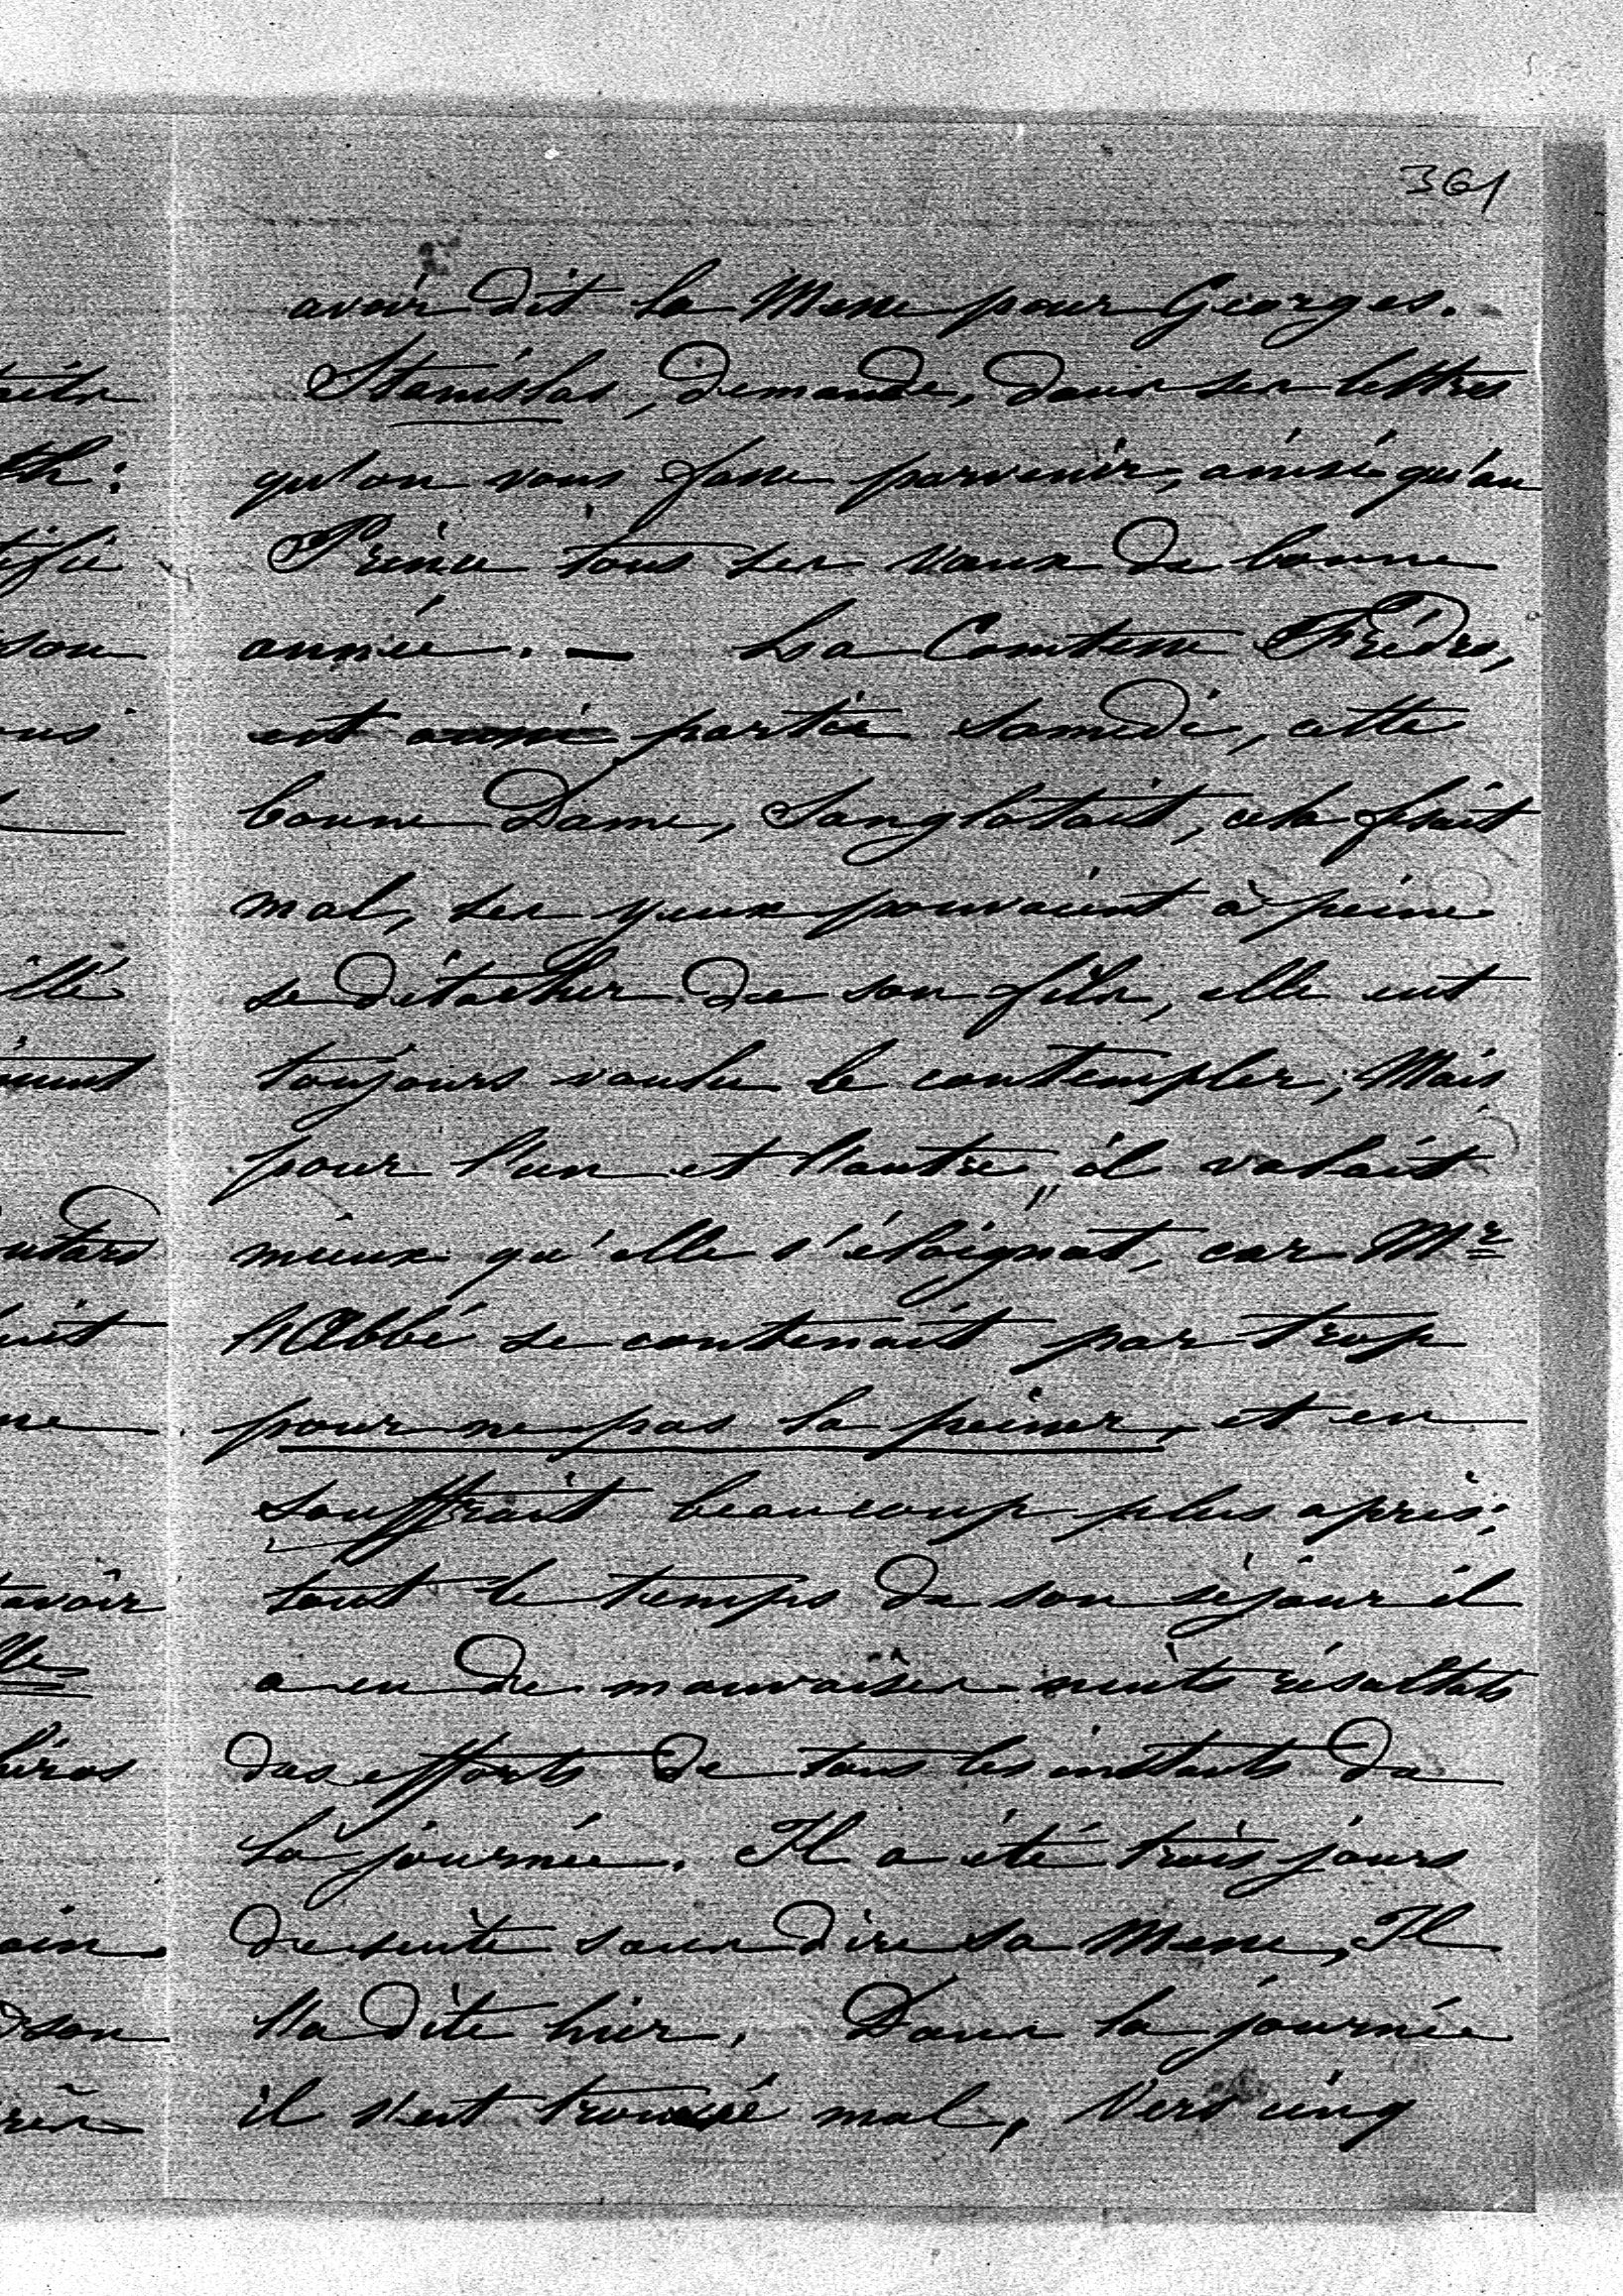 361
avoir dit la Messe pour Georges.
Stanislas, demande, dans ses lettres
qu'on vous fasse parvenir, ainsi qu'au
Prince tous ses vœux de bonne
année. — La Comtesse Frédro,
est partie samedi, cette
bonne Dame, Sanglotait, cela fesait
mal, ses yeux pouvaient à peine
se détacher de son fils, elle eut
toujours voulu le contempler; Mais
pour l'un et l'autre il valait
mieux qu'elle s'éloignat, car Mr
l'Abbé se contenait par trop
pour ne pas la peiner, et en
souffrait beaucoup plus après;
tout le temps de son séjour il
a eu de mauvaises nuits résultats
des efforts de tous les instants de
la journée. Il a été trois jours
de suite sans dire sa Messe, Il
l'a dite hier. Dans la journée
il s'est trouvé mal, Vers cinq